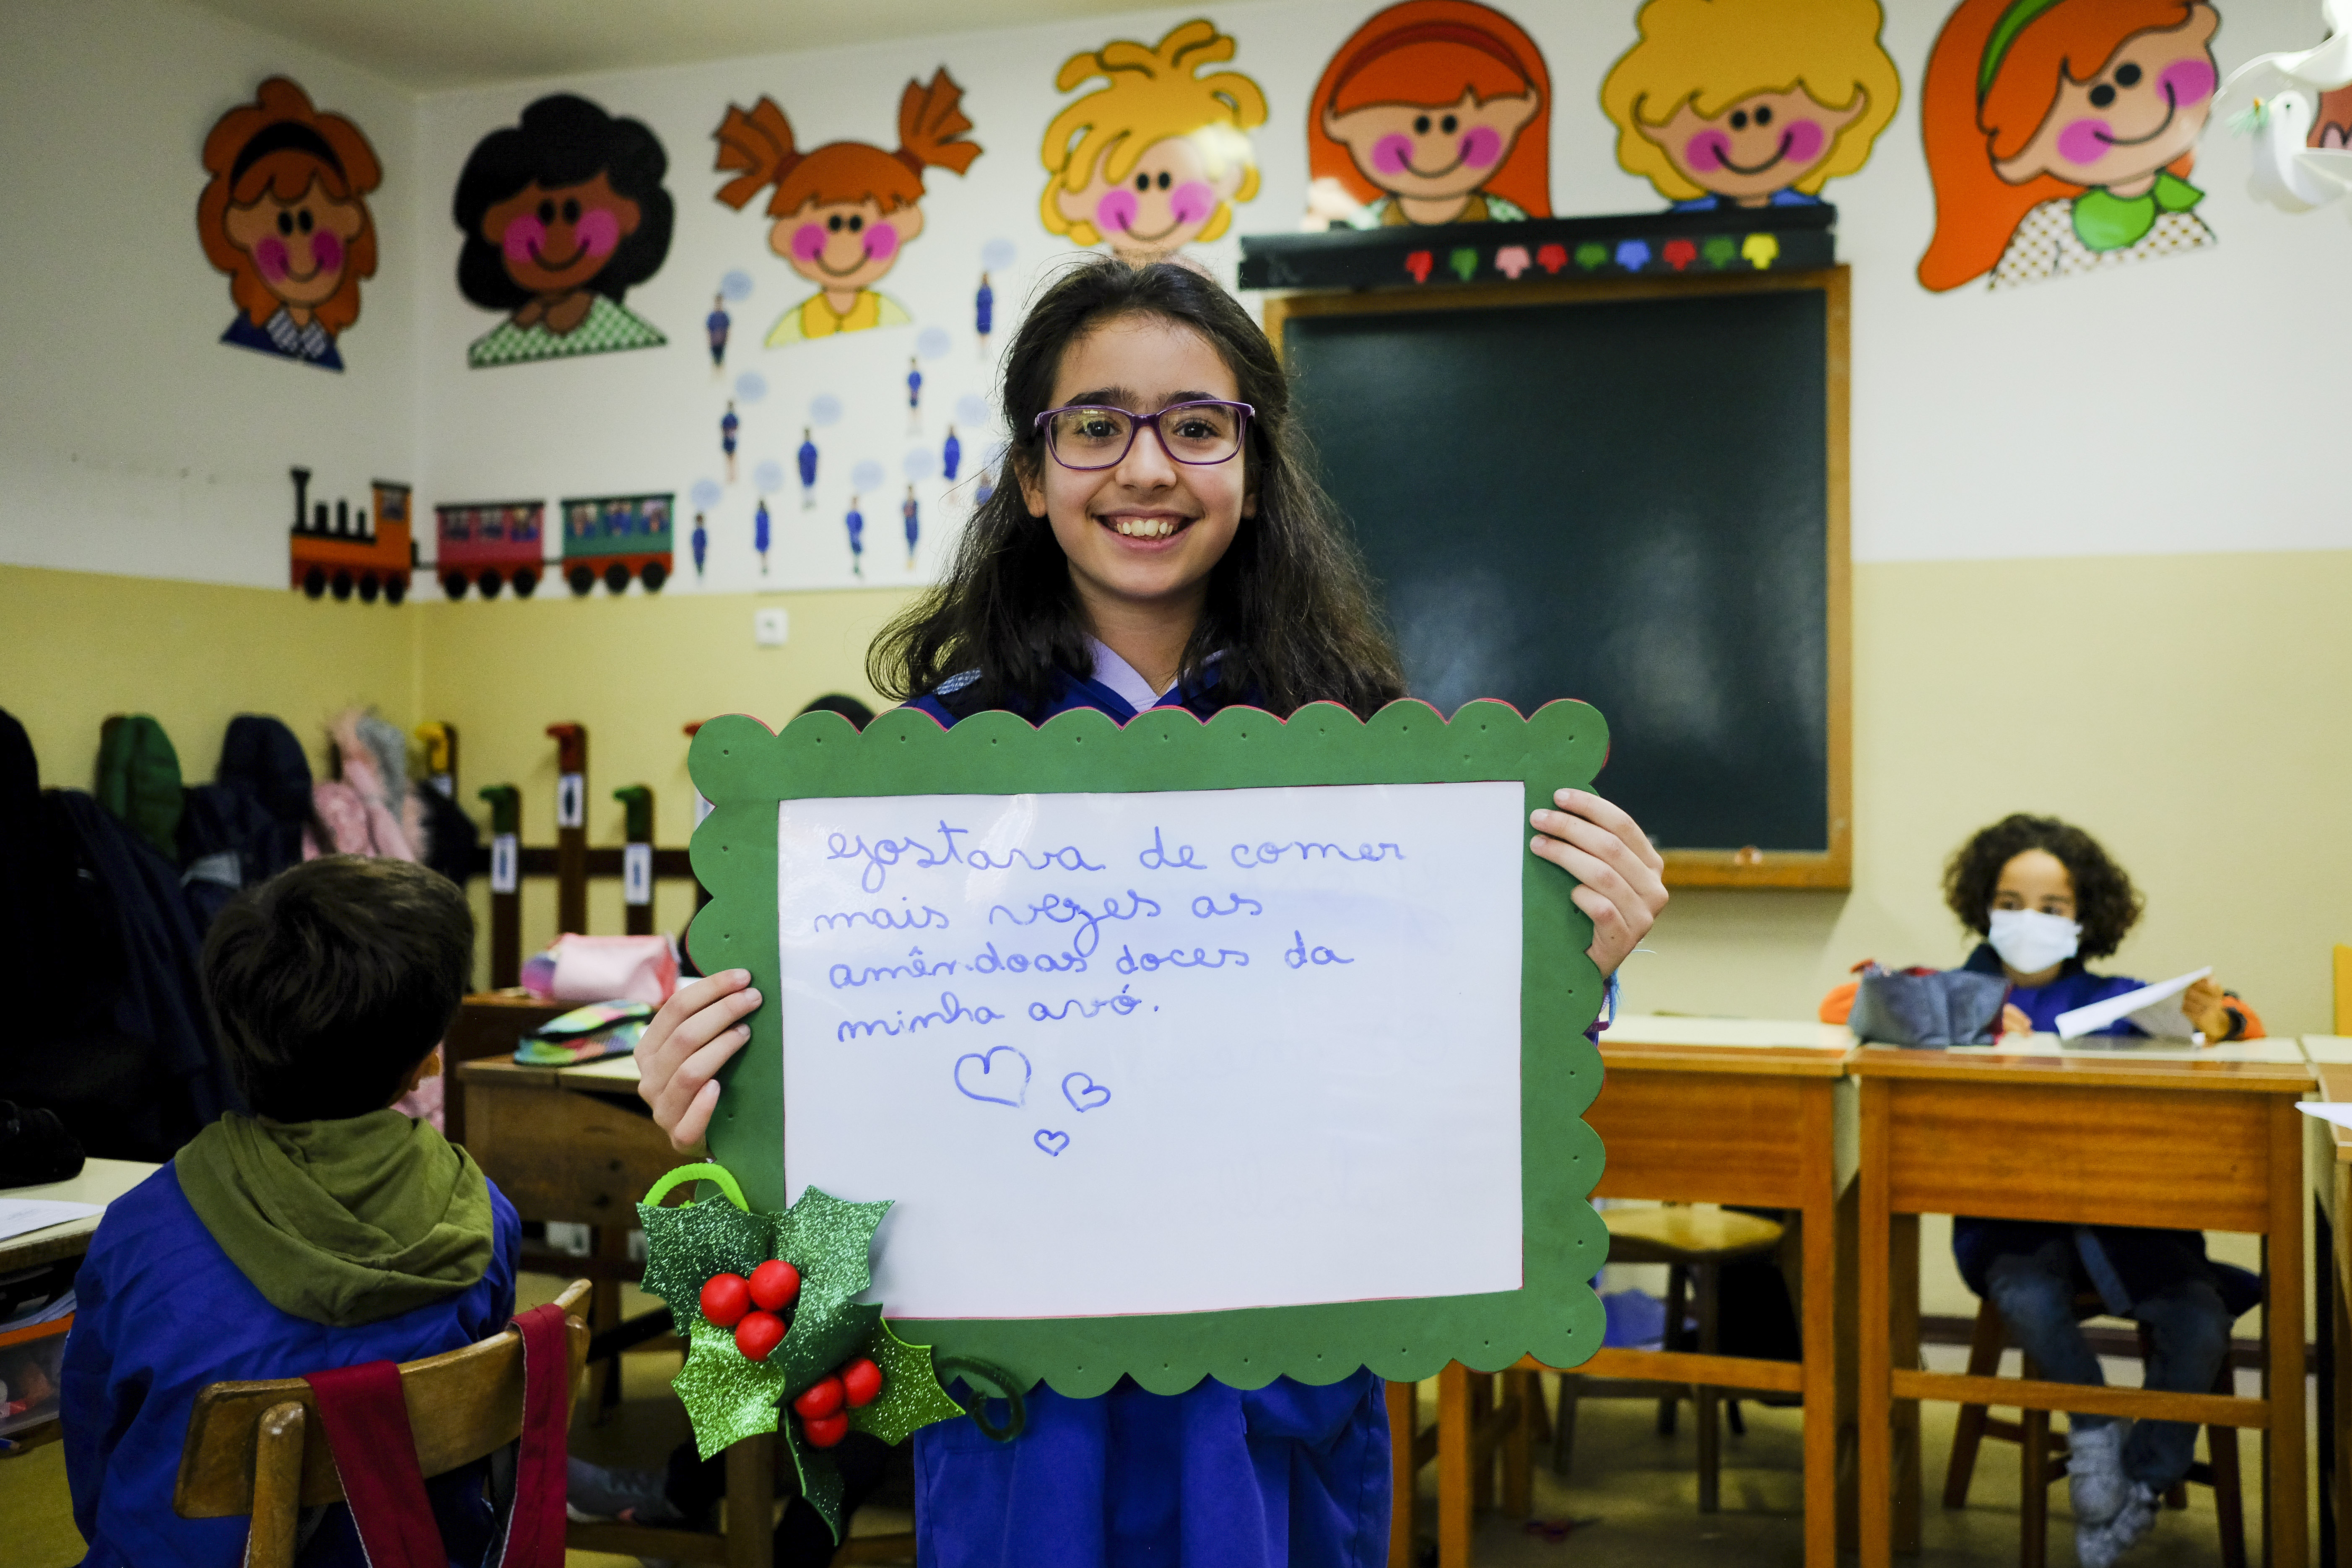 Gostava de comer
mais vezes as
amêndoas doces da
minha avó.